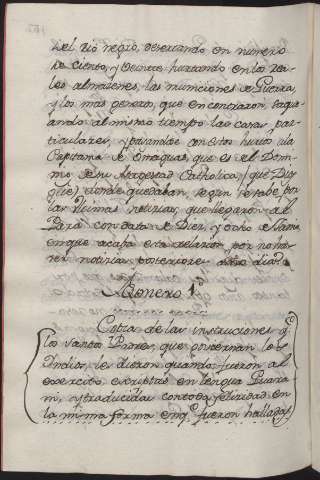 del rio negro, desertando en numero
de ciento, y veinte hurtando en los rea-
les almazenes, las municiones de Guerra,
y los mas generos, que encontraron, saque
ando al mismo tiempo las casas par-
ticulares, y pasandose con esto hacia la
Capitania de Omaguas, que es el Domi-
nio de su Magestad Catholica, (que Dios
gue) donde quedaban, segun se sabe por
las ultimas noticias, que llegaron al
Pará con data de Diez, y ocho de Junio
en que acaba esta relacion por no ha-
ver noticias posteriores a este dia
Numero 1º
Copia de las instruciones q
los santos Padres, que governan los
Indios, les dieron quando fueron al
exercito escriptas en lengua Guara
ni, y traducidas con toda felicidad en
la misma forma en q fueron halladas